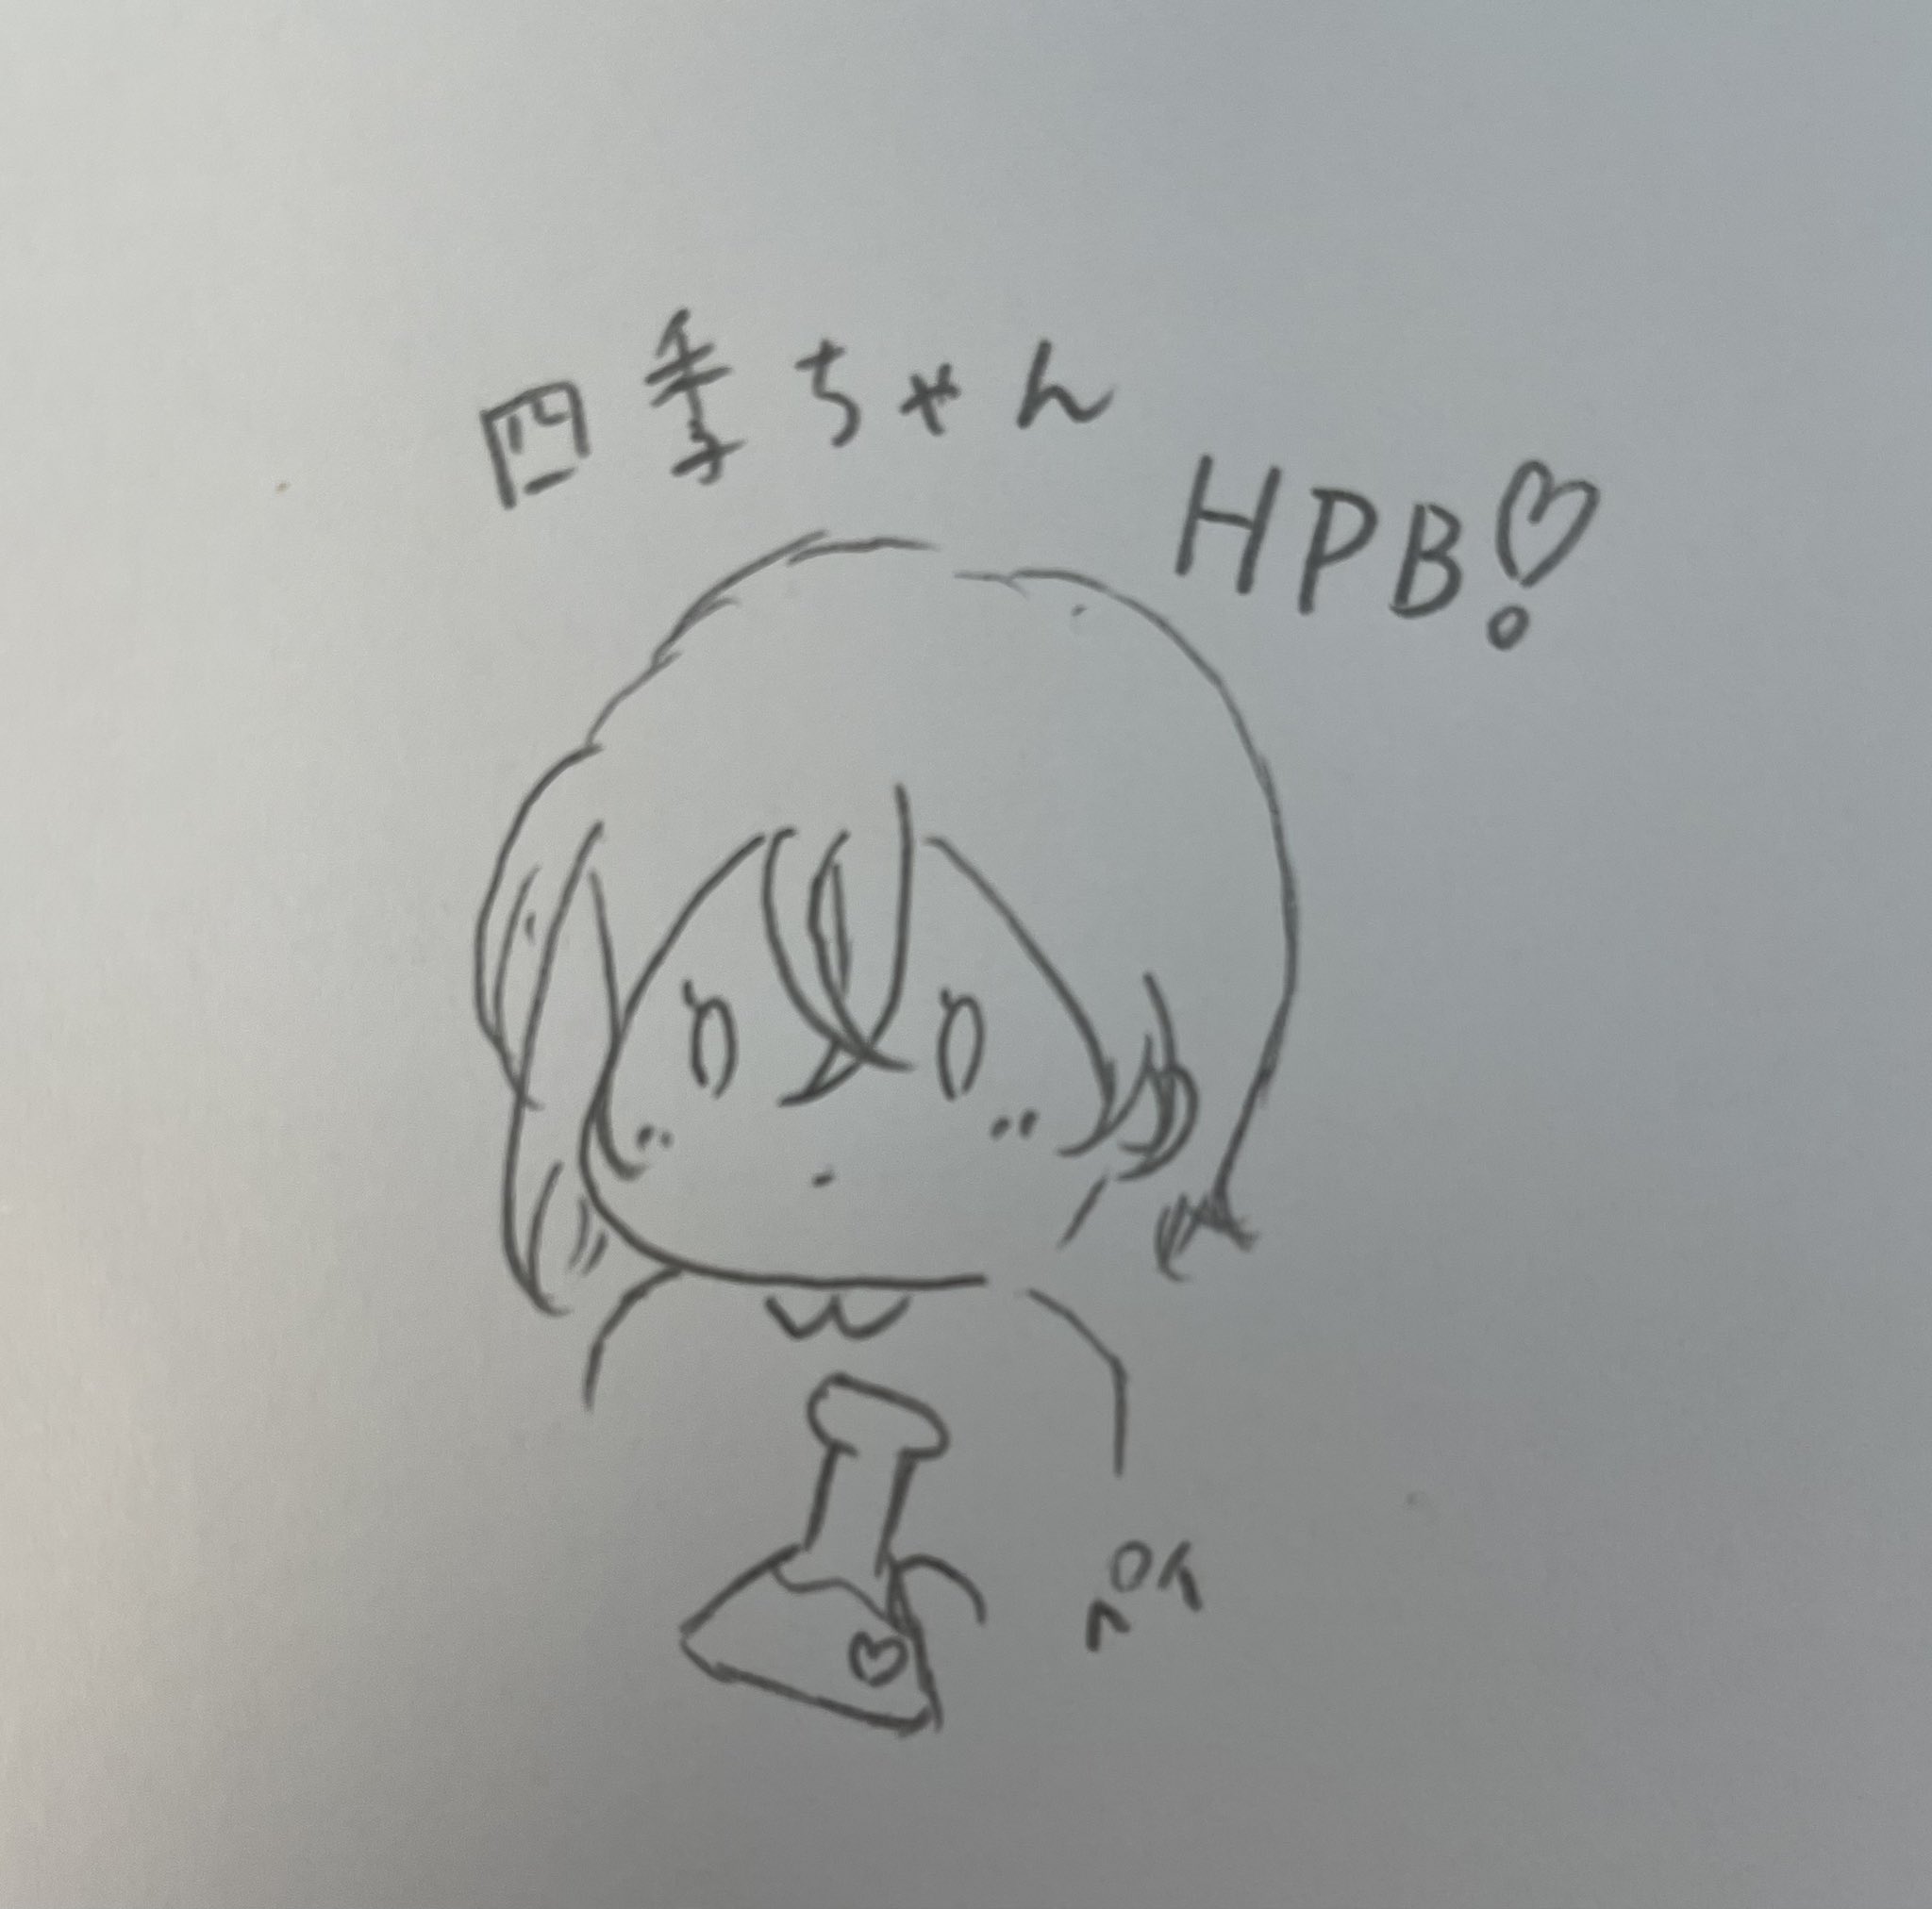 四季ちゃん
HPB!